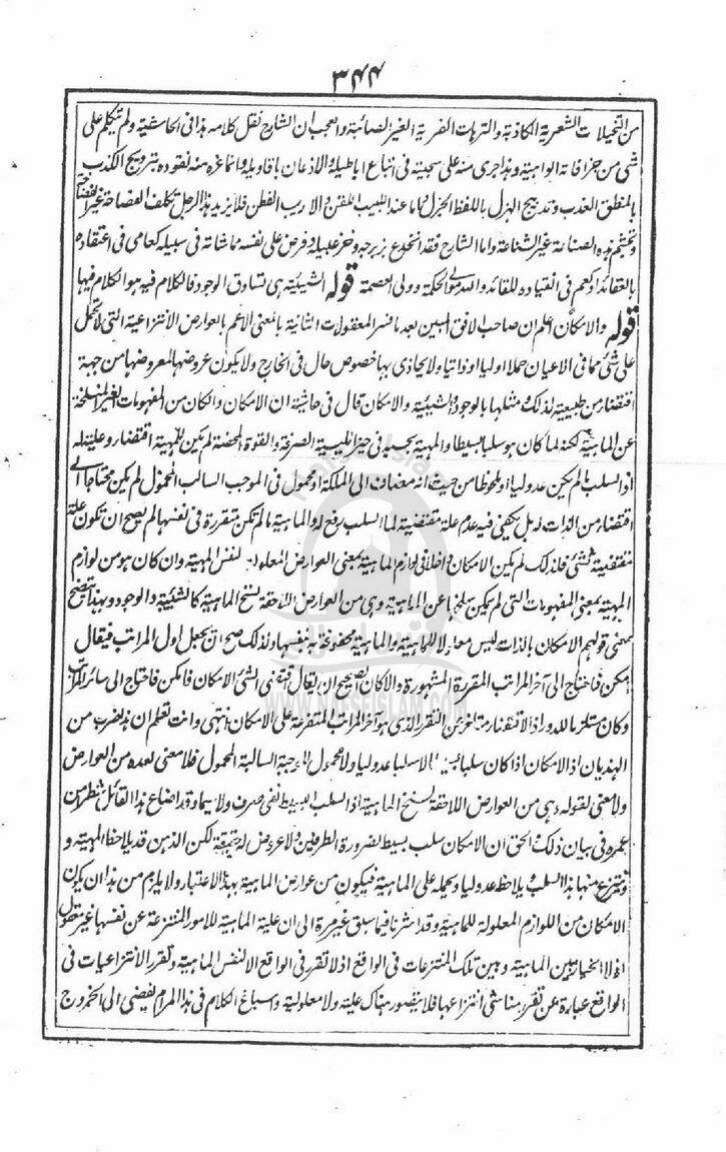 ٣٤٤
من التخيلات الشعرية الكاذبة والترهات الفرية الغير الصائبة والعجب ان الشارح نقل كلامه هذا فى الحاشية ولم تيكلم على
شى من خرافاته الواهية وهذا جرى منه على سجيته فى اتباع اباطيله والاذعان باقاويله وانما غره منه نفوده بترويج الكذب
بالمنطق العذب وتدبيج الهزل باللفظ الجزل واما عند اللبيب اللقن والاريب الفطن فلا يزيد هذا الرجل تكلف الفصاحة غير
وتجشم هذه الصناعة غير الشناعة واما الشارح فقد انخدع بزبرجه وخزعبيله وفرض على نفسه مماشاته فى سبيله كعامى فى اعتقاده
بالعقائد او كعم فى انقياده للقائد والله مولى الحكمة وولى العصمة قوله الشيئية هى تساوق الوجود فالكلام فيه هو الكلام فيها
قوله والامكان اعلم ان صاحب الافق المبين بعد ما فسر المعقولات الثانية بالمعنى الاعم بالعوارض الانتزاعية التى لا تحمل
على شئ مما فى الاعيان حملا اوليا او ذاتيا ولا يحاذى بها خصوص حال فى الخارج ولا يكون عروضها لمعروضها من جهة
اقتضاء من طبيعته لذلك ومثلها بالوجود والشيئية والامكان قال فى حاشيته ان الامكان وان كان من المفهومات الغير المنسلخة
عن الماهية لكنه لما كان هو سلبا بسيطا والمهية بحسبه فى حيز الليسية الصرفة والقوة المحضة لم يكن للمهية اقتضاء وعلية له
اذ السلب ما لم يكن عدوليا او ملحوظا من حيث انه مضاف الى الملكة او محمول فى الموجب السالب المحمول لم يكن محتاجا الى
اقتضاء من الذات له بل يكفى فيه عدم علة مقتضية لما السلب رفع له والماهية ما لم تكن متقررة فى نفسها لم يصح ان تكون علة
مقتضية لشئ فلذلك لم يكن الامكان داخلا فى لوازم الماهية بمعنى العوارض المعلولة لنفس المهية وان كان هو من لوازم
المهية بمعنى المفهومات التى لم يكن ينسلخ عن الماهية وهى من العوارض اللاحقة لسنخ الماهية كالشيئية والوجود وبهذا يتضح
معنى قولهم الامكان بالذات ليس معلولا للماهية والماهية محفوفة به بنفسها ولذلك صح ان يجعل اول المراتب فيقال
امكن فاحتاج الى آخر المراتب المقررة المشهورة والا كان يصح ان يقال اقتضى الشئ الامكان فامكن فاحتاج الى سائر المراتب
وكان مستلزما للدور اذ الاقتضاء متاخر عن التقرر الذى هو آخر المراتب المتفرعة على الامكان انتهى وانت تعلم ان هذا ضرب من
الهذيان اذ الامكان اذا كان سلبا بسيطا لا سلبا عدوليا ولا محمول الموجبة السالبة المحمول فلا معنى لعده من العوارض
ولا معنى لقوله وهى من العوارض اللاحقة لسنخ الماهية اذ السلب البسيط نفى صرف ولا سيما وقد اضاع هذا القائل شطرا من
عمره فى بيان ذلك والحق ان الامكان سلب بسيط لضرورة الطرفين ولا عروض له حقيقة لكن الذهن قد يلاحظ المهية و
ينتزع منها هذا السلب ويلاحظه عدوليا ويحمله على الماهية فيكون من عوارض الماهية بهذا الاعتبار ولا يلزم من هذا ان يكون
الامكان من اللوازم المعلولة للماهية وقد اشرنا فيما سبق غير مرة الى ان علية الماهية للامور المنتزعة عن نفسها غير معقول
اذ لا بين الماهية وبين تلك المنتزعات فى الواقع اذ لا تقرر فى الواقع الا لنفس الماهية وتقرر الانتزاعيات فى
الواقع عبارة عن تقرر مناشى انتزاعها فلا يتصور هناك علية ولا معلولية واسباغ الكلام فى هذا المرام يفضى الى الخروج
WWW.NAFSEISLAM.COM